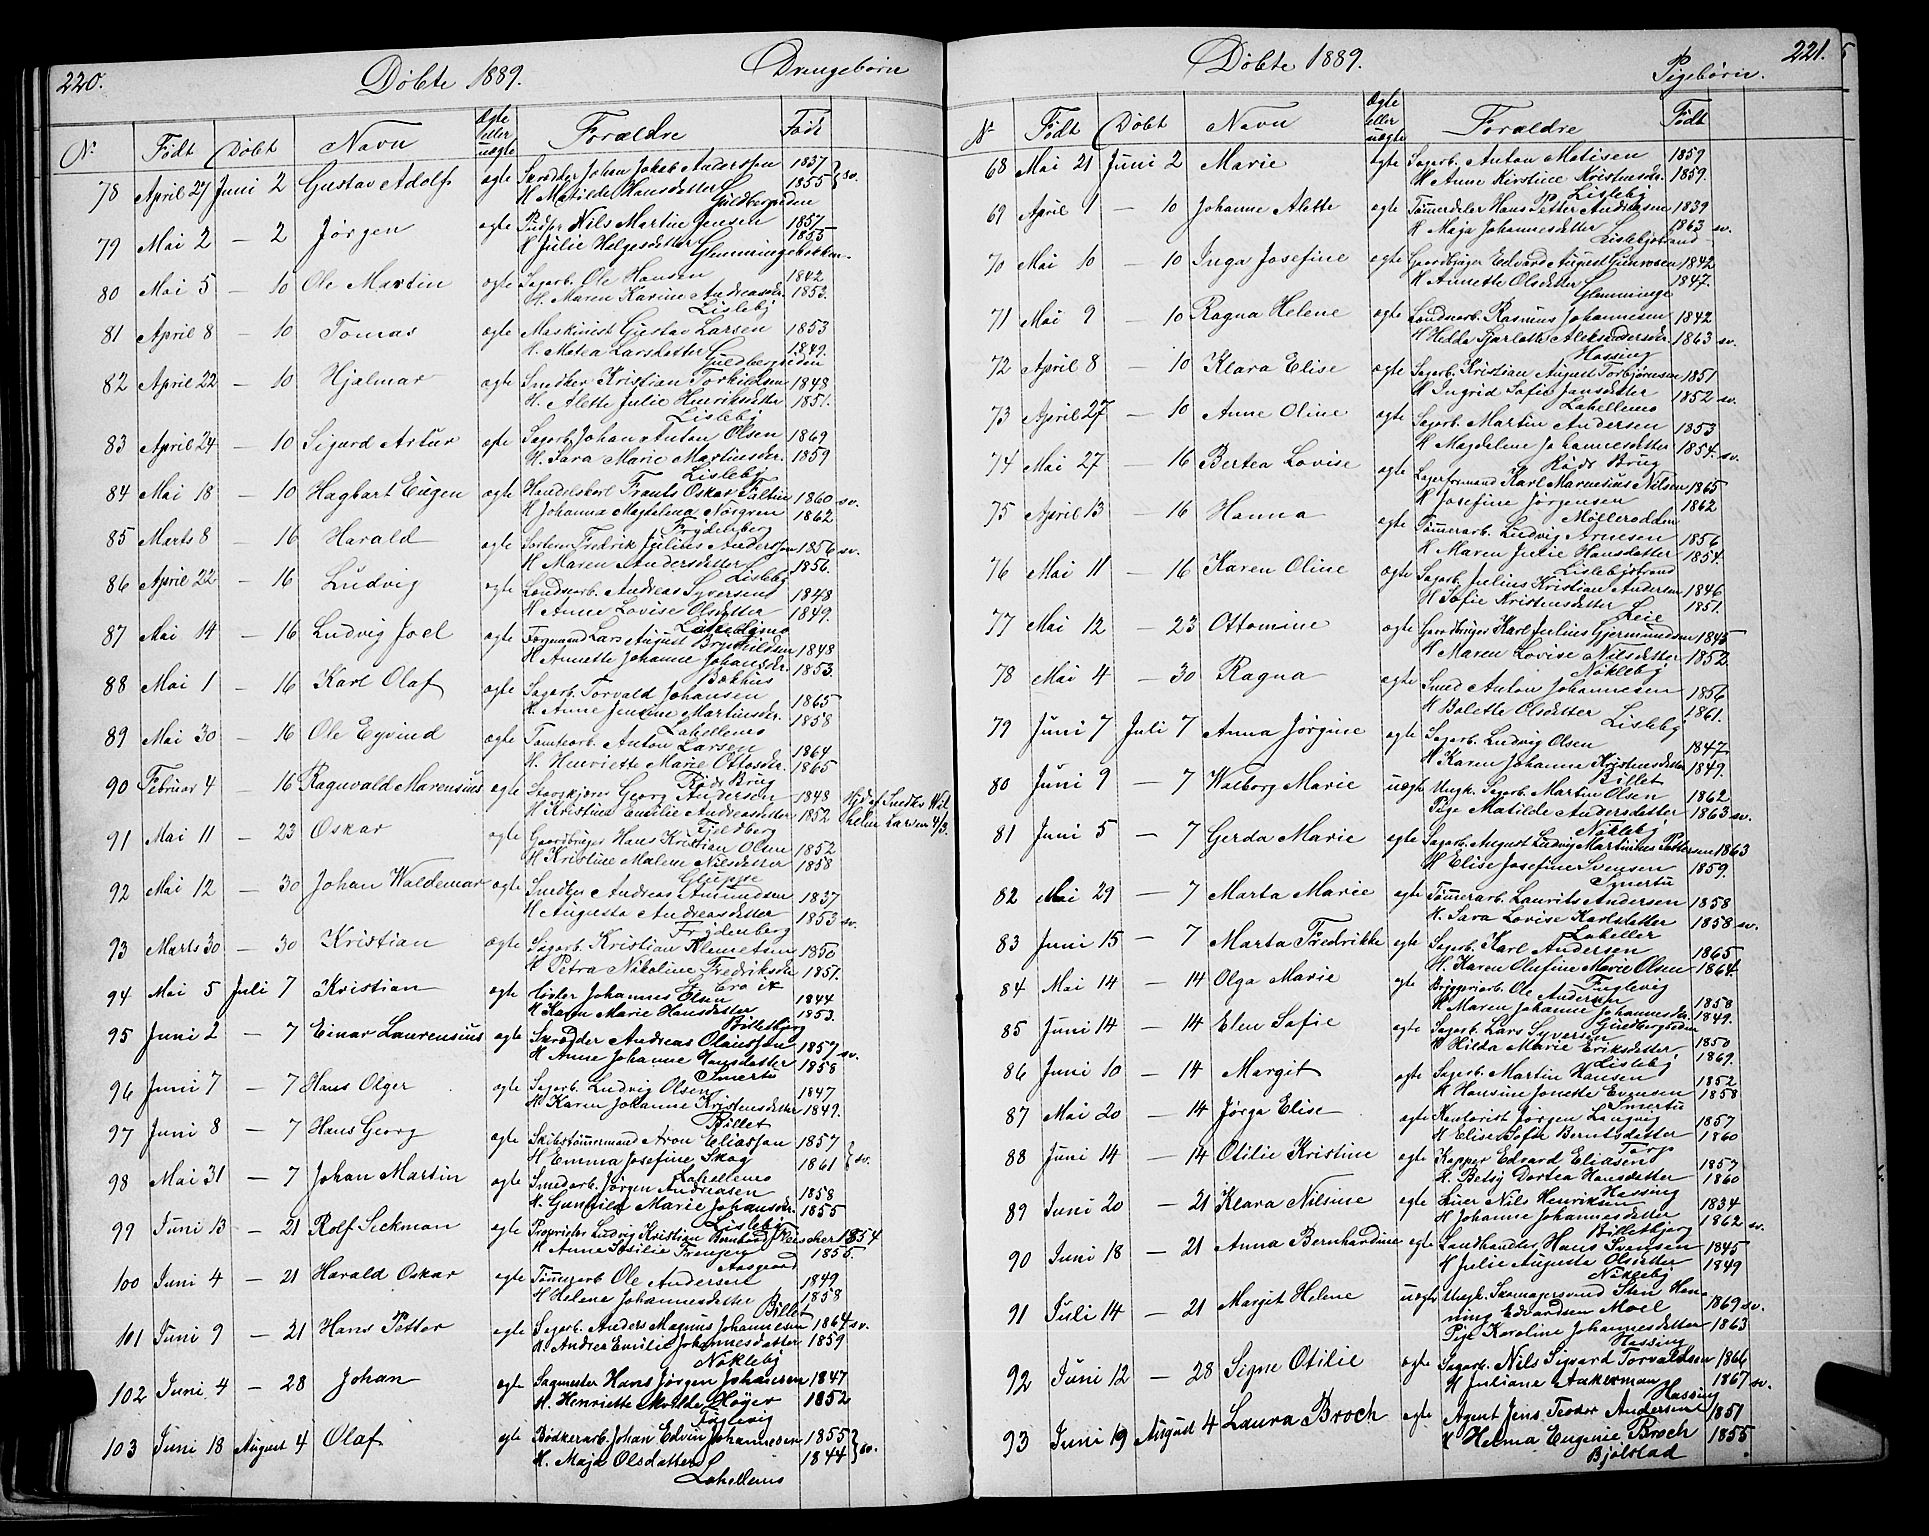 220.
Døbte 1889.
Drengebørn
No. Født Døbt Navn Ægte eller uægte Forældre Født
78 April 27 Juni 2 Gustav Adolf ægte Skrædder Johan Jakob Anderssøn 1837
H. Matilde Hansdatter 1855 } sv.
Guldbergsiden
79 Mai 2 — 2 Jørgen ægte Nils Martin Jensen 1851
H. Julie Helgesdatter 1855
Glemmingebakken.
80 Mai 5 — 10 Ole Martin ægte Sagarb. Ole Hansen 1842.
H. Maren Karine Andreasdr. 1853.
Lisleby
81 April 8 — 10 Tomas ægte Maskinist Gustav Larsen 1853
H. Matea Larsdatter 1849.
Guldbergsiden
82 April 22 — 10 Hjalmar ægte Snedker Kristian Torkildsen 1848
H. Alette Julie Henriksdatter 1851.
Lisleby
83 April 24 — 10 Sigurd Artur ægte Sagarb. Johan Anton Olsen 1869
H. Sara Marie Martinsdr. 1859
Lisleby
84 Mai 18 — 10 Hagbart Eugen ægte Frants Oskar Faltin 1860 sv.
H. Johanna Magdalena Norgren 1862
Frydenberg
85 Marts 8 — 16 Harald ægte Fredrik Julius Anderssøn 1856 sv.
H. Maren Andersdatter 1856.
Lisleby
86 April 22 — 16 Ludvig ægte Landsarb. Andreas Syversen 1848
H. Anne Lovise Olsdatter 1849.
Lahellemo
87 Mai 14 — 16 Ludvig Joel ægte Formand Lars August Bryntildsen 1848
H. Annette Johanne Johansdr. 1853.
Bakhus
88 Mai 1 — 16 Karl Olaf ægte Sagarb. Torvald Johansen 1865
H. Anne Jensine Martinsdr. 1858
Lahellemo
89 Mai 30 — 16 Ole Eyvind ægte Tomtearb. Anton Larsen 1864
H. Henriette Marie Ottosdr. 1865
Røds Brug
90 Februar 4 — 16 Ragnvald Marensius ægte Georg Andersen 1848 Hjd af Snedker Wilhelm Larsen 4/3.
H. Kristine Emilie Andreasdatter 1852
Fjeldberg
91 Mai 11 — 23 Oskar ægte Gaardbruger Hans Kristian Olsen 1852
H. Kristine Malene Nilsdatter 1858
Gluppe
92 Mai 12 — 30 Johan Waldemar ægte Snedker Andreas Amundsen 1837
H. Augusta Andreasdatter 1853 sv.
Frydenberg
93 Marts 30 — 30 Kristian ægte Sagarb. Kristian Klemetsen 1850
H. Petra Nikoline Fredriksdr 1851.
94 Mai 5 Juli 7 Kristian ægte Høvler Johannes Olsen 1844
H. Karen Marie Hansdatter 1853.
Billetbjerg
95 Juni 2 — 7 Einar Laurensius ægte Skrædder Andreas Olaussøn 1857 sv.
H. Anne Johanne Hansdatter 1858
Smertu
96 Juni 7 — 7 Hans Olger ægte Sagarb. Ludvig Olsen 1847
H. Karen Johanne Kristensdatter 1849.
Billet
97 Juni 8 — 7 Hans Georg ægte Skibstømmermand Aron Eliassøn 1857
H. Emma Josefine Skog 1861 } sv.
Lahellemo
98 Mai 31 — 7 Johan Martin ægte Smedarb. Jørgen Andreasen 1858
H. Gunhild Marie Johansdr. 1855
Lisleby
99 Juni 13 — 21 Rolf Seckman ægte Proprietær Ludvig Kristian Bernhard Fleischer 1854
H. Anne Frenzen 1855.
Aasgaard
100 Juni 4 — 21 Harald Oskar ægte Tømmerarb Ole Andersen 1849.
H. Helene Johannesdatter 1858
Billet
101 Juni 9 — 21 Hans Petter ægte Sagarb. Anders Magnus Johannesen 1864 sv.
H. Andrea Emilie Johannesdatter 1859
Nøkleby
102 Juni 4 — 28 Johan ægte Sagmester Hans Jørgen Johansen 1847
H. Henriette Matilde Høyer 1852
Fuglevig
103 Juni 18 August 4 Olaf ægte Bødkerarb. Johan Edvin Johannesen 1855
H. Maja Olsdatter 1844 } sv.
Lahellemo
221.
Døbte 1889.
Pigebørn.
No Født Døbt Navn Ægte eller uægte Forældre Født
68 Mai 21 Juni 2 Marie ægte Sagarb. Anton Matisen 1859
H. Anne Kirstine Kristensdr. 1859.
Lisleby
69 April 1 — 10 Johanne Alette ægte Tømmerdeler Hans Petter Andreasen 1839
H. Maja Johannesdatter 1863 sv.
Lislebystrand
70 Mai 6 — 10 Inga Josefine ægte Gaardbruger Edvard August Gunerøsen 1842
H. Annette Olsdatter 1847.
Glemminge
71 Mai 9 — 10 Ragna Helene ægte Landsarb. Rasmus Johannesen 1842
H. Hedda Sjarlotte Aleksandersdr. 1863 sv.
Hassing
72 April 8 — 10 Klara Elise ægte Sagarb. Kristian August Torbjørnsen 1851
H. Ingrid Sofie Jansdatter 1852 sv.
Lahellemo
73 April 27 — 10 Anne Oline ægte Sagarb. Martin Andersen 1853
H. Magdalene Johannesdatter 1854. sv.
Røds Brug
74 Mai 27 — 16 Bertea Lovise ægte Lagerformand Karl Marensius Nilsen 1865
H. Josefine Jørgensen 1862
Møllerodden
75 April 13 — 16 Hanna ægte Tømmerarb. Ludvig Arnesen 1856
H. Maren Julie Hansdatter 1854.
Lislebystrand
76 Mai 11 — 16 Karen Oline ægte Sagarb. Julius Kristian Andersen 1846
H. Sofie Kristensdatter 1851.
Leie
77 Mai 12 — 23 Ottomine ægte Gaardbruger Karl Julius Gjermundsen 1845
H. Maren Lovise Nilsdatter 1852
Nøkleby
78 Mai 4 — 30 Ragna ægte Smed Anton Johannesen 1856
H. Bolette Olsdatter 1861.
Lisleby
79 Juni 7 Juli 7 Anna Jørgine ægte Sagarb. Ludvig Olsen 1847
H. Karen Johanne Kristensdatter 1849.
Billet
80 Juni 9 — 7 Walborg Marie uægte Ungk. Sagarb. Martin Olsen 1862
Pige Matilde Andersdatter 1863 sv.
Nøkleby
81 Juni 5 — 7 Gerda Marie ægte Sagarb. August Ludvig Martinius Pettersen 1863
H. Elise Josefine Svensen 1859.
Smertu
82 Mai 29 — 7 Marta Marie ægte Tømmerarb. Laurits Andersen 1858
H. Sara Lovise Karlsdatter 1858 sv.
Laheller
83 Juni 15 — 7 Marta Fredrikke ægte Sagarb. Karl Andersen 1865
H. Karen Olufine Marie Olsen 1864
Fuglevig
84 Mai 14 — 14 Olga Marie ægte Bryggeriarb. Ole Andersen 1858
H. Maren Johanne Johannesdr. 1849.
Guldbergsiden
85 Juni 14 — 14 Elen Sofie ægte Sagarb. Lars Syversen 1850
H. Hilda Marie Eriksdatter 1869.
Lisleby
86 Juni 10 — 14 Margit ægte Sagarb. Martin Hansen 1852
H. Hansine Jonette Evensen 1858
Smertu
87 Mai 20 — 14 Jørga Elise ægte Kontorist Jørgen Langvig 1857
H. Elise Sofie Berntsdatter 1860
Torp
88 Juni 14 — 14 Otilie Kristine ægte Kapper Edvard Eliasen 1857
H. Betsy Dortea Hansdatter 1860
Hassing
89 Juni 20 — 21 Klara Nilsine ægte Nils Henriksen 1834
H. Johanne Johannesdatter 1862 sv.
Billetbjerg
90 Juni 18 — 21 Anna Bernhardine ægte Landhandler Hans Svensen 1845
H. Julie Augusta Olsdatter 1849
Nøkleby
91 Juli 14 — 21 Margit Helene uægte Ungk. Skomagersvend Sten Henning Edvardsen Moel 1869 sv.
Pige Karoline Johannesdatter 1863
Hassing
92 Juni 12 — 28 Signe Otilie ægte Sagarb. Nils Sigvard Torvaldsen 1866
H. Juliane Aakerman 1867 sv.
Hassing
93 Juni 19 August 4 Laura Broch ægte Agent Jens Teodor Andersen 1851
H. Helma Eugenie Broch 1855
Bjølstad